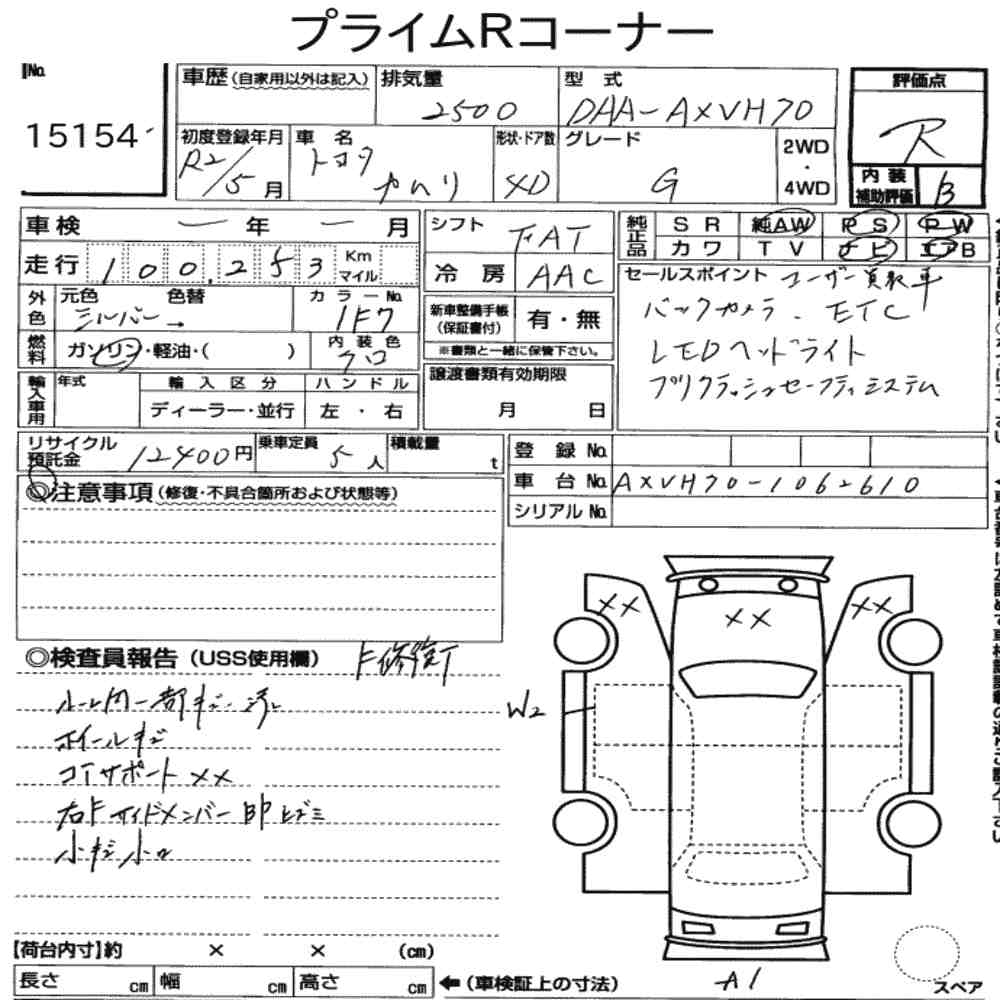 プライムRコーナー
No.
15154
車歴 (自家用以外は記入)
排気量
2500
型 式
DAA-AXVH70
評価点
R
内装
補助評価
B
初度登録年月
R2/5月
車 名
トヨタ
カムリ
形状・ドア数
4D
グレード
G
2WD
・
4WD
車検 ー 年 ー 月
走行 100,253 Km マイル
シフト
FAT
冷 房
AAC
純正品
SR 純AW PS PW
カワ TV ナビ エアB
外色
元色 色替
シルバー→
カラーNo.
1F7
燃料
ガソリン・軽油・( )
内装色
クロ
新車整備手帳
(保証書付)
有・無
※書類と一緒に保管下さい。
セールスポイント ユーザー買取車
バックカメラ. ETC
LEDヘッドライト
プリクラッシュセーフティシステム
輸入車用
年式
輸入区分
ディーラー・並行
ハンドル
左・右
譲渡書類有効期限
月 日
リサイクル
預託金
12400円
乗車定員
5人
積載量
t
登 録 No.
車 台 No. AXVH70-1062610
シリアル No.
◎注意事項 (修復・不具合箇所および状態等)
◎検査員報告 (USS使用欄) F修復了
ルーム内一部キズ・汚レ
ホイールキズ
コアサポート××
右FサイドメンバーBPヒズミ
小キズ小凹
×× ×× ××
W2
A1
スペア
【荷台内寸】約 × × (cm)
長さ cm 幅 cm 高さ cm
←(車検証上の寸法)